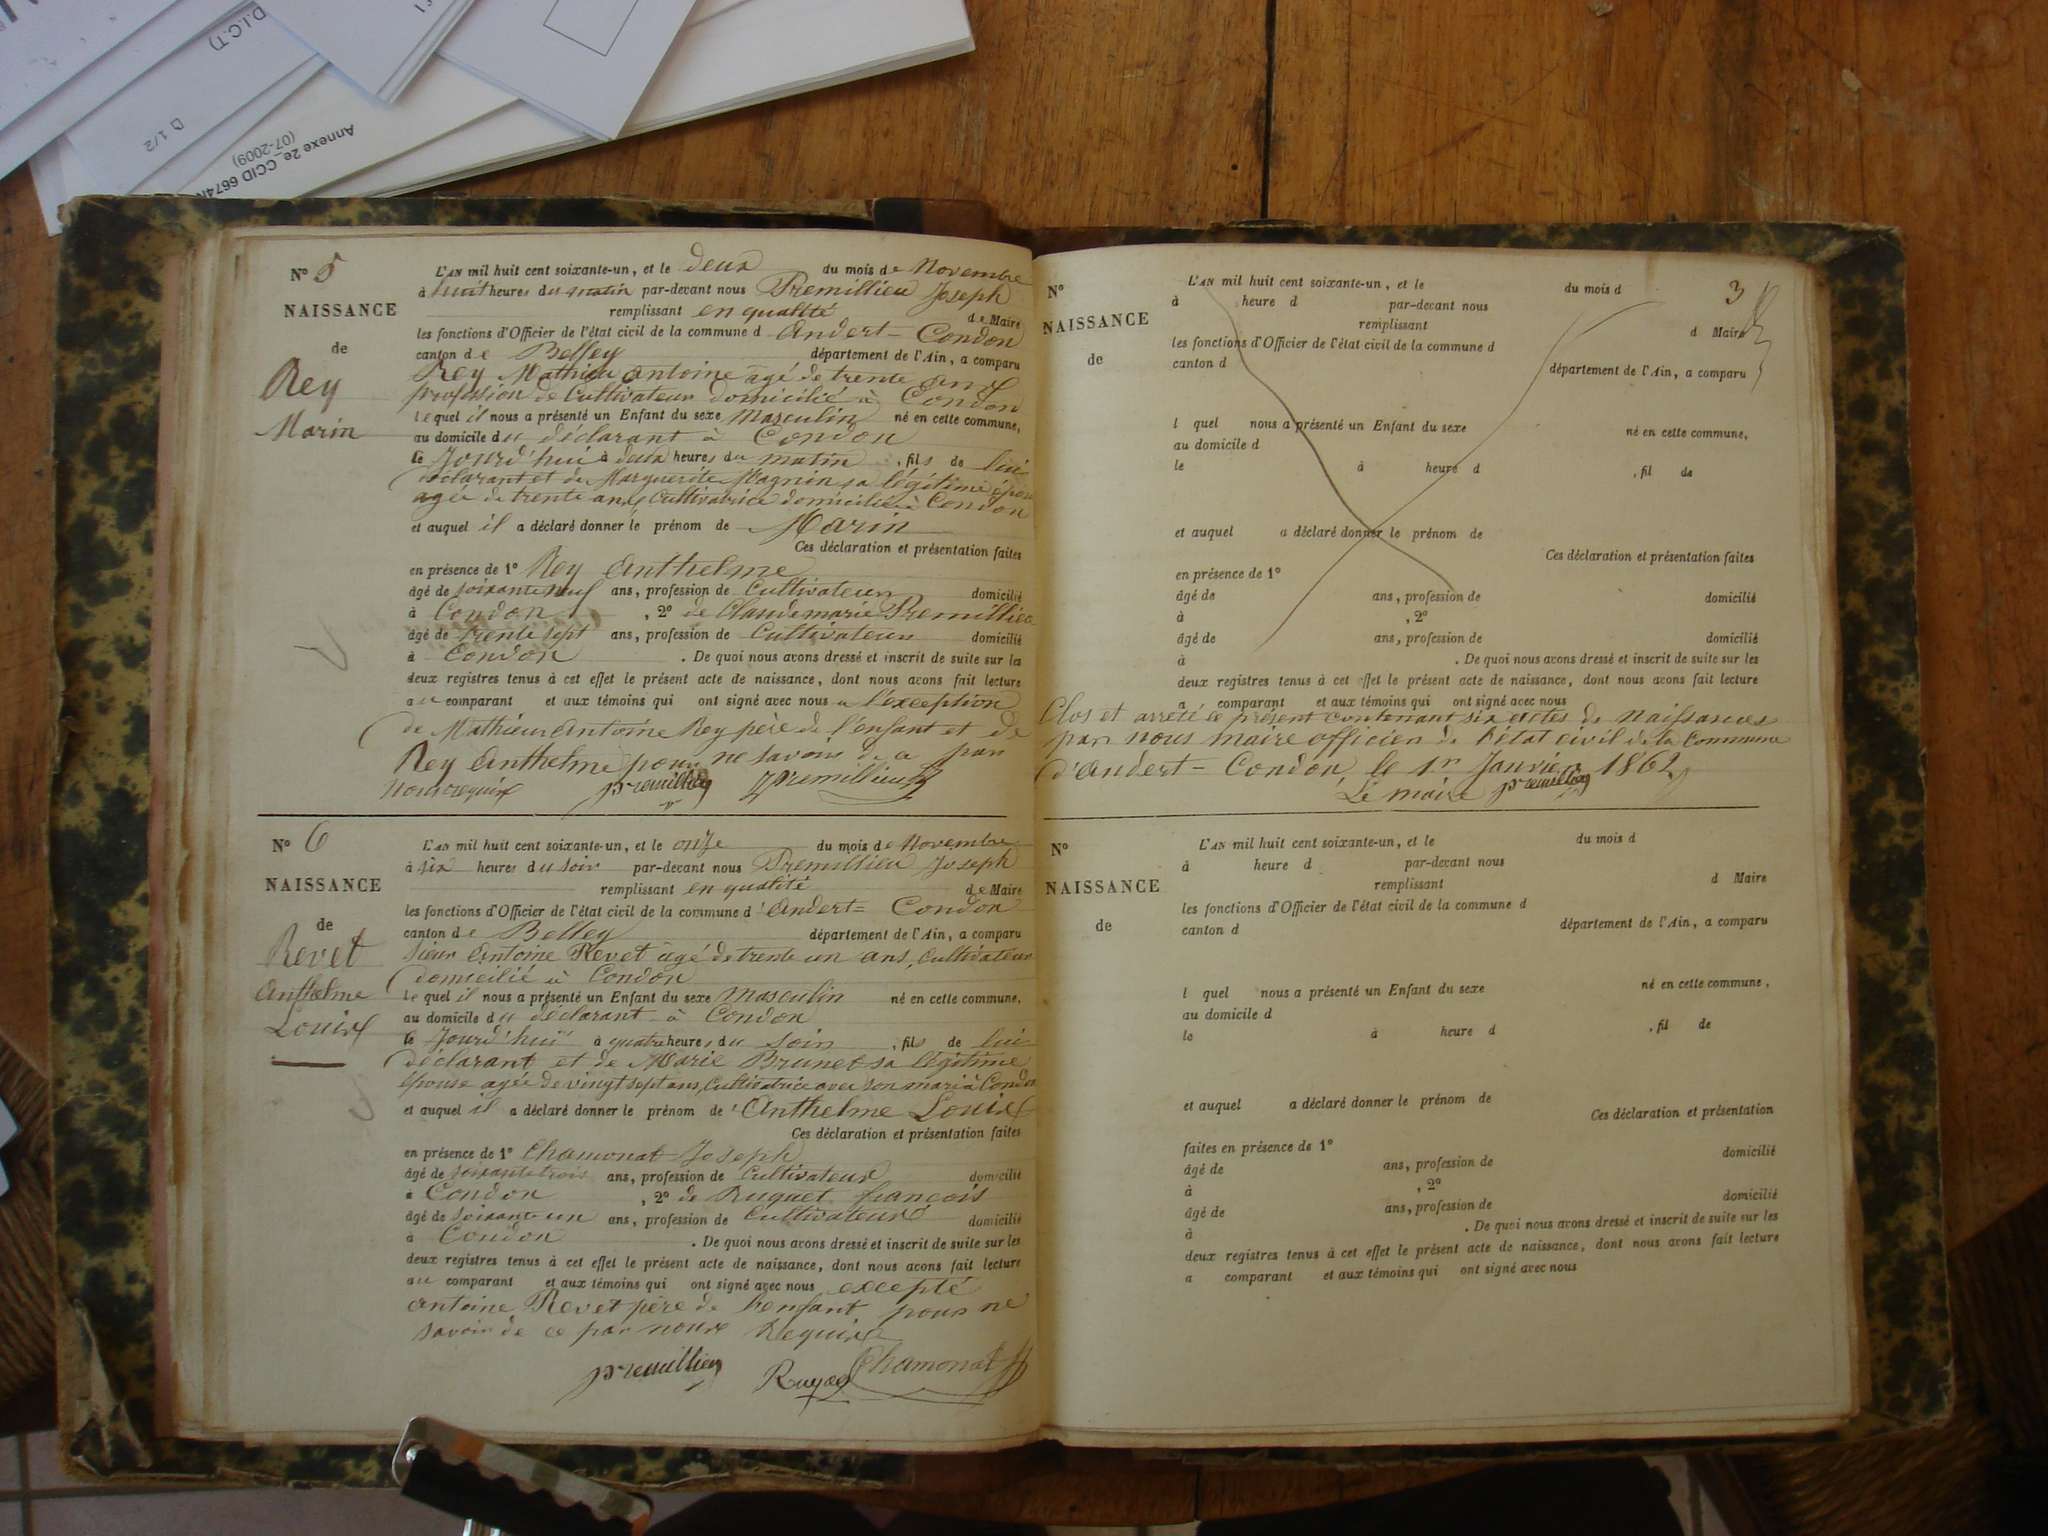 D.I.C.T)
1/2
Annexe 2e_CCID 6674N
(07-2009)
N° 5
NAISSANCE
de
Rey
Marin
L'AN mil huit cent soixante-un, et le deux du mois de Novembre
à huit heures du matin par-devant nous Premillieu Joseph
remplissant en qualité de Maire
les fonctions d'Officier de l'état civil de la commune d'Andert-Condon
canton de Belley département de l'Ain, a comparu
Rey Mathieu Antoine âgé de trente ans
profession de Cultivateur domicilié à Condon
lequel il nous a présenté un Enfant du sexe masculin né en cette commune,
au domicile du déclarant à Condon
le Jourd'hui à deux heures du matin, fils de lui
déclarant et de Marguerite Magnin sa légitime épou
agée de trente ans, Cultivatrice domiciliée à Condon
et auquel il a déclaré donner le prénom de Marin
Ces déclaration et présentation faites
en présence de 1° Rey Anthelme
âgé de soixante neuf ans, profession de Cultivateur domicilié
à Condon, 2° de Claude marie Premillieu
âgé de trente sept ans, profession de Cultivateur domicilié
à Condon. De quoi nous avons dressé et inscrit de suite sur les
deux registres tenus à cet effet le présent acte de naissance, dont nous avons fait lecture
au comparant et aux témoins qui ont signé avec nous a l'exception
de Mathieu Antoine Rey père de l'enfant et de
Rey Anthelme pour ne savoir de ce par
nous requis premillieu Premillieu
N° 6
NAISSANCE
de
Revet
Anthelme
Louis
L'AN mil huit cent soixante-un, et le onze du mois de Novembre
à six heures du soir par-devant nous Premillieu Joseph
remplissant en qualité de Maire
les fonctions d'Officier de l'état civil de la commune d'Andert=Condon
canton de Belley département de l'Ain, a comparu
sieur Antoine Revet âgé de trente un ans, Cultivateur
domicilié à Condon
lequel il nous a présenté un Enfant du sexe masculin né en cette commune,
au domicile du déclarant à Condon
le Jourd'hui à quatre heures du soir, fils de lui
déclarant et de Marie Brunet sa légitime
épouse agée de vingt sept ans, Cultivatrice avec son mari à Condon
et auquel il a déclaré donner le prénom de Anthelme Louis
Ces déclaration et présentation faites
en présence de 1° Chamonat Joseph
âgé de soixante trois ans, profession de Cultivateur domicilié
à Condon, 2° de Ruguet françois
âgé de soixante un ans, profession de Cultivateur domicilié
à Condon. De quoi nous avons dressé et inscrit de suite sur les
deux registres tenus à cet effet le présent acte de naissance, dont nous avons fait lecture
au comparant et aux témoins qui ont signé avec nous excepté
Antoine Revet père de l'enfant pour ne
savoir de ce par nous Requis
premillieu Chamonat
N°
NAISSANCE
de
3
L'AN mil huit cent soixante-un, et le du mois d
à heure d par-devant nous
remplissant d Maire
les fonctions d'Officier de l'état civil de la commune d
canton d département de l'Ain, a comparu
l quel nous a présenté un Enfant du sexe né en cette commune,
au domicile d
le à heure d , fil de
et auquel a déclaré donner le prénom de
Ces déclaration et présentation faites
en présence de 1°
âgé de ans, profession de domicilié
à , 2°
âgé de ans, profession de domicilié
à . De quoi nous avons dressé et inscrit de suite sur les
deux registres tenus à cet effet le présent acte de naissance, dont nous avons fait lecture
a comparant et aux témoins qui ont signé avec nous
Clos et arrêté le présent contenant six actes de Naissances
par nous maire officier de l'état civil de la Commune
d'Andert-Condon, le 1er Janvier 1862
Le maire premillieu
N°
NAISSANCE
de
L'AN mil huit cent soixante-un, et le du mois d
à heure d par-devant nous
remplissant d Maire
les fonctions d'Officier de l'état civil de la commune d
canton d département de l'Ain, a comparu
l quel nous a présenté un Enfant du sexe né en cette commune,
au domicile d
le à heure d , fil de
et auquel a déclaré donner le prénom de
Ces déclaration et présentation
faites en présence de 1°
âgé de ans, profession de domicilié
à , 2°
âgé de ans, profession de domicilié
à . De quoi nous avons dressé et inscrit de suite sur les
deux registres tenus à cet effet le présent acte de naissance, dont nous avons fait lecture
a comparant et aux témoins qui ont signé avec nous